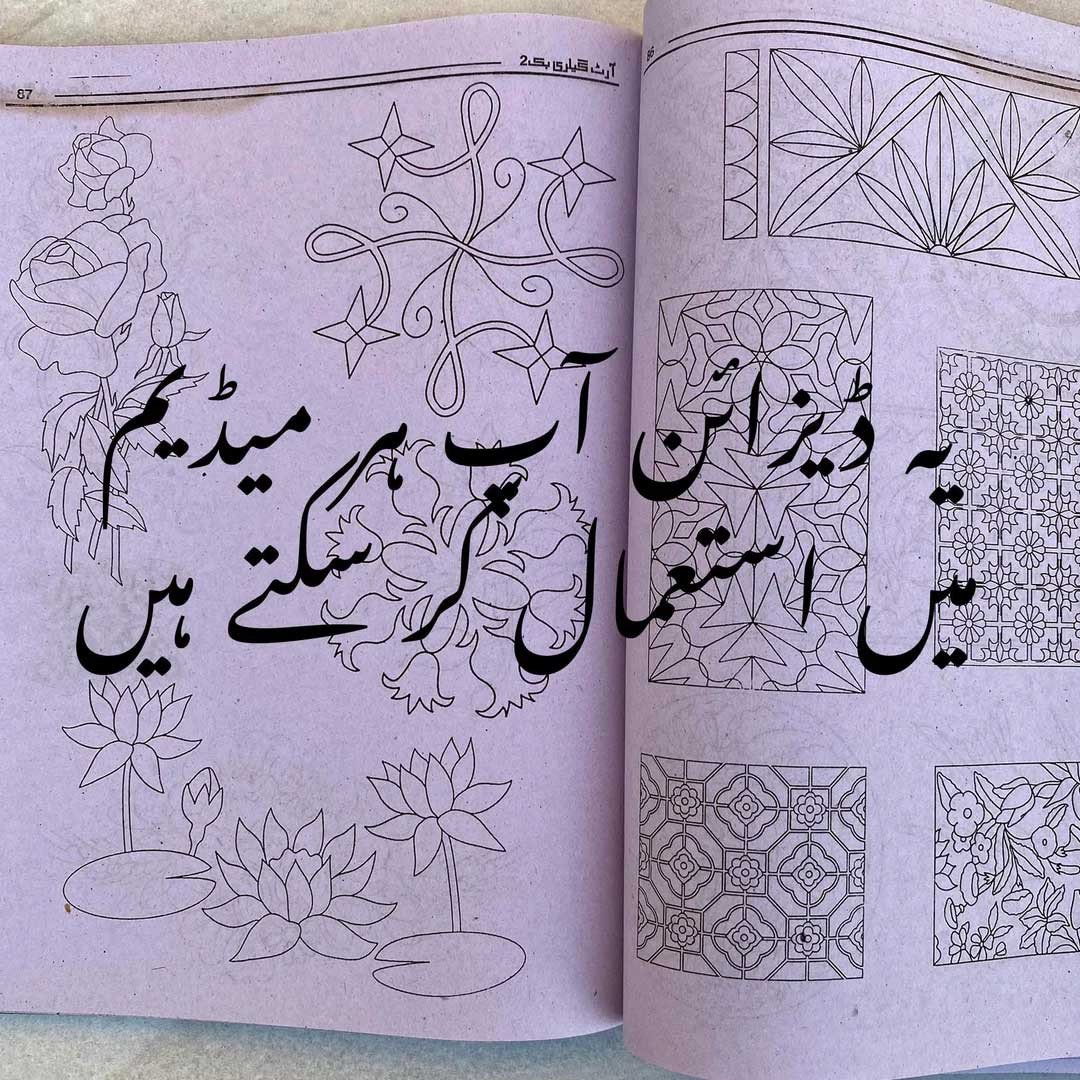 آرٹ گیلری بک 2
87
86
یہ ڈیزائن آپ ہر میڈیم
میں استعمال کر سکتے ہیں